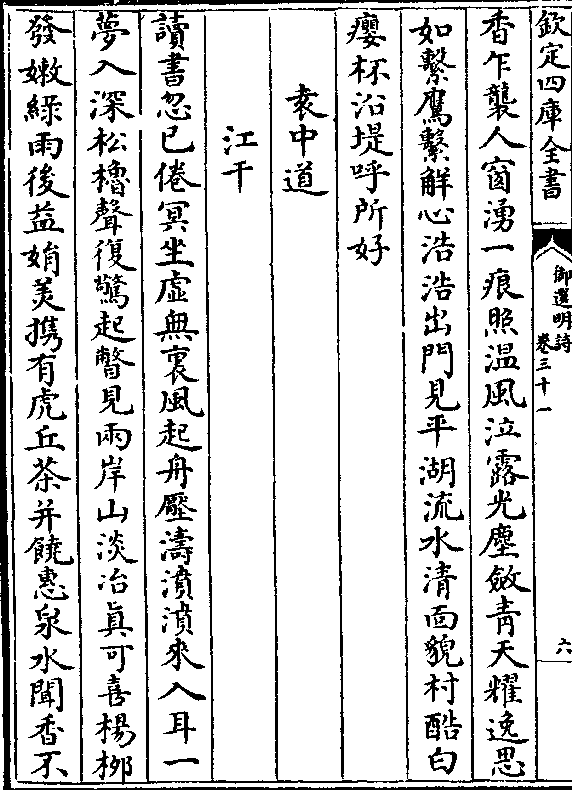 欽定四庫全書
御選明詩
卷三十一
六
香乍襲人窗湧一痕照温風泣露光塵斂青天耀逸思
如繫鷹繫解心浩浩出門見平湖流水清面貌村酷白
癭杯沿堤呼所好
袁中道
江干
讀書忽已倦冥坐虛無裏風起舟壓濤濆濆來入耳一
夢入深松櫓聲復驚起瞥見兩岸山淡冶眞可喜楊栁
發嫩綠雨後益娟美携有虎丘茶并饒惠泉水聞香不